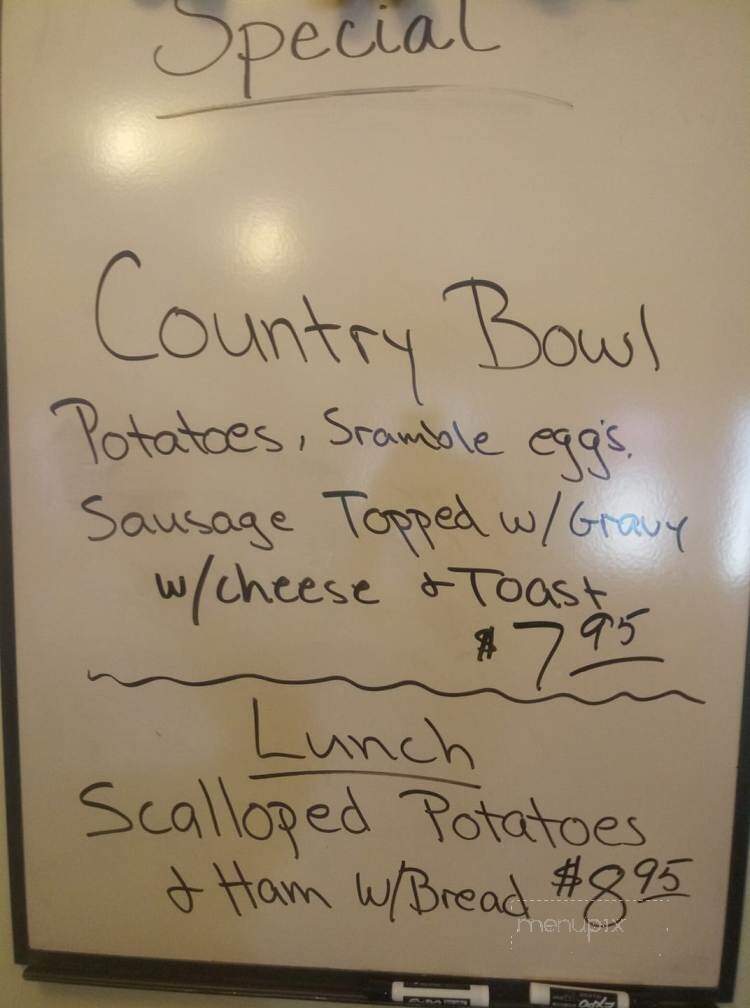 Special
Country Bowl
Potatoes, Sramble egg's.
Sausage Topped w/Gravy
w/cheese & Toast
$7 95
Lunch
Scalloped Potatoes
& Ham w/Bread $8 95
menupix